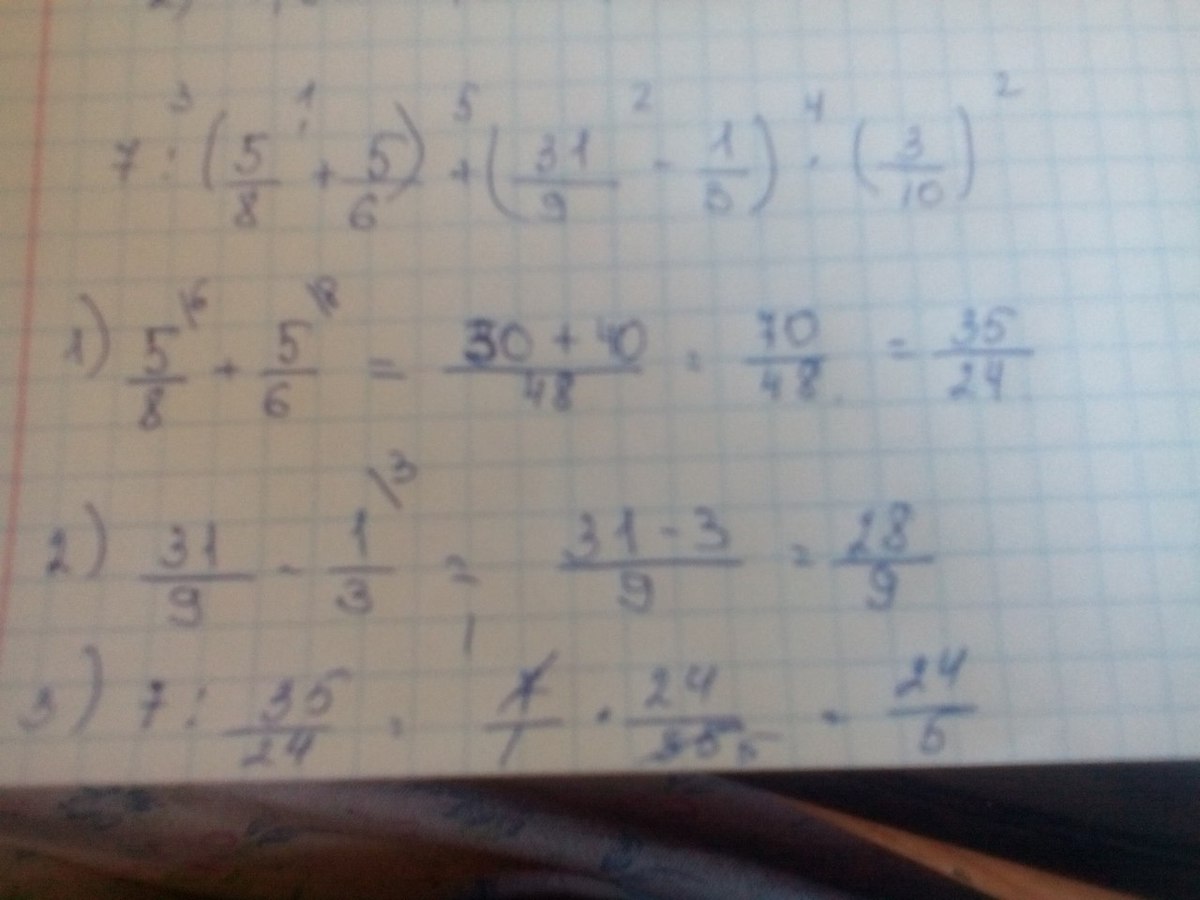 7 : (5/8 + 5/6) + (31/9 - 1/3) · (3/10)²
1) 5/8 + 5/6 = 30 + 40/48 = 70/48 = 35/24
2) 31/9 - 1/3 \3 = 31 - 3/9 = 28/9
3) 7 : 35/24 = 7/1 · 24/35 5 = 24/5